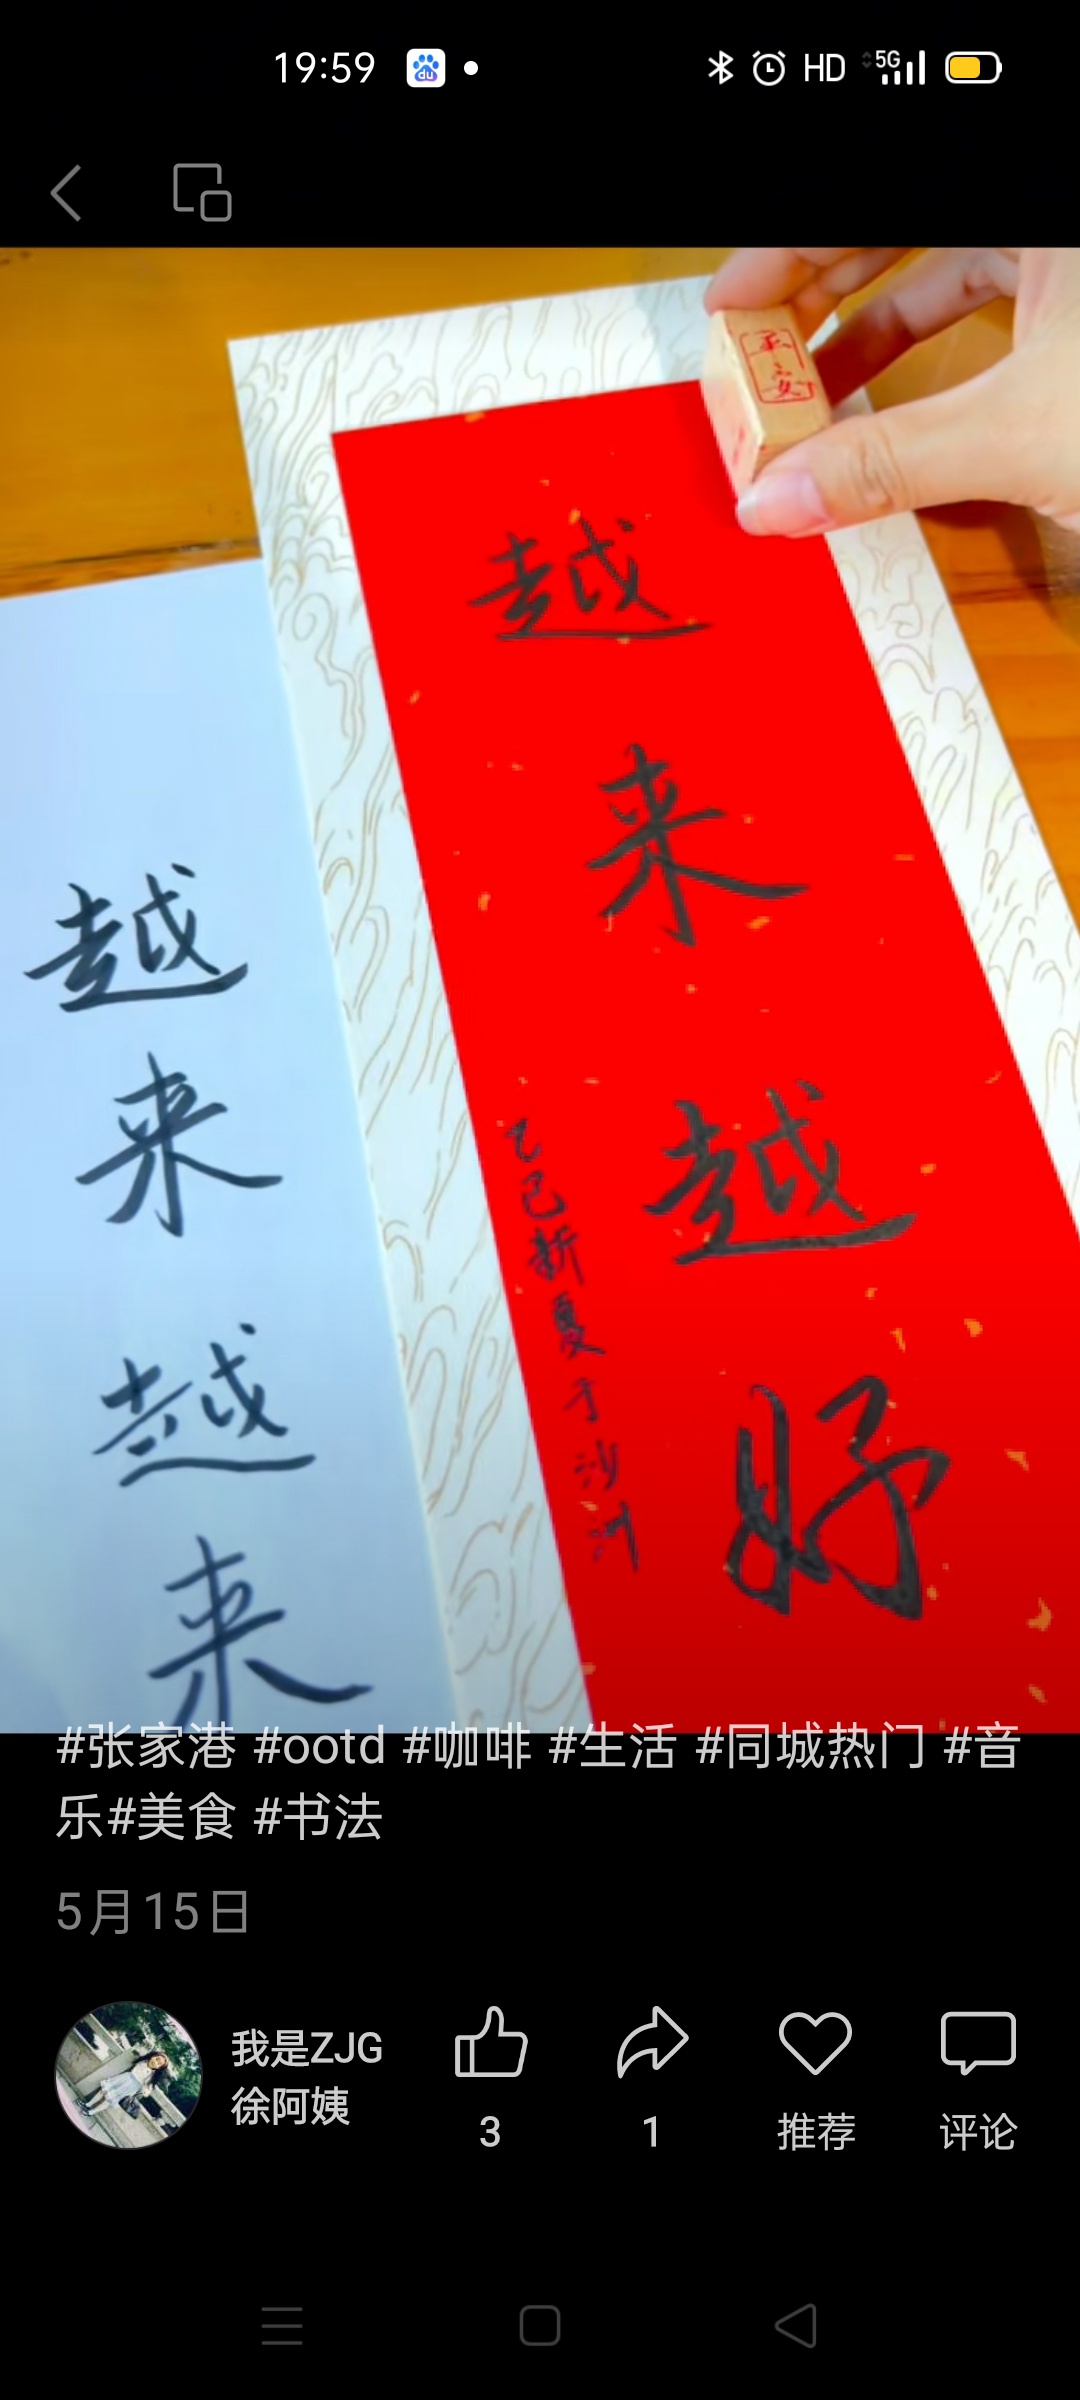 19:59
du
HD
5G
越来越好
乙巳新夏于沙洲
越来越来
#张家港 #ootd #咖啡 #生活 #同城热门 #音
乐#美食 #书法
5月15日
我是ZJG
徐阿姨
3
1
推荐
评论